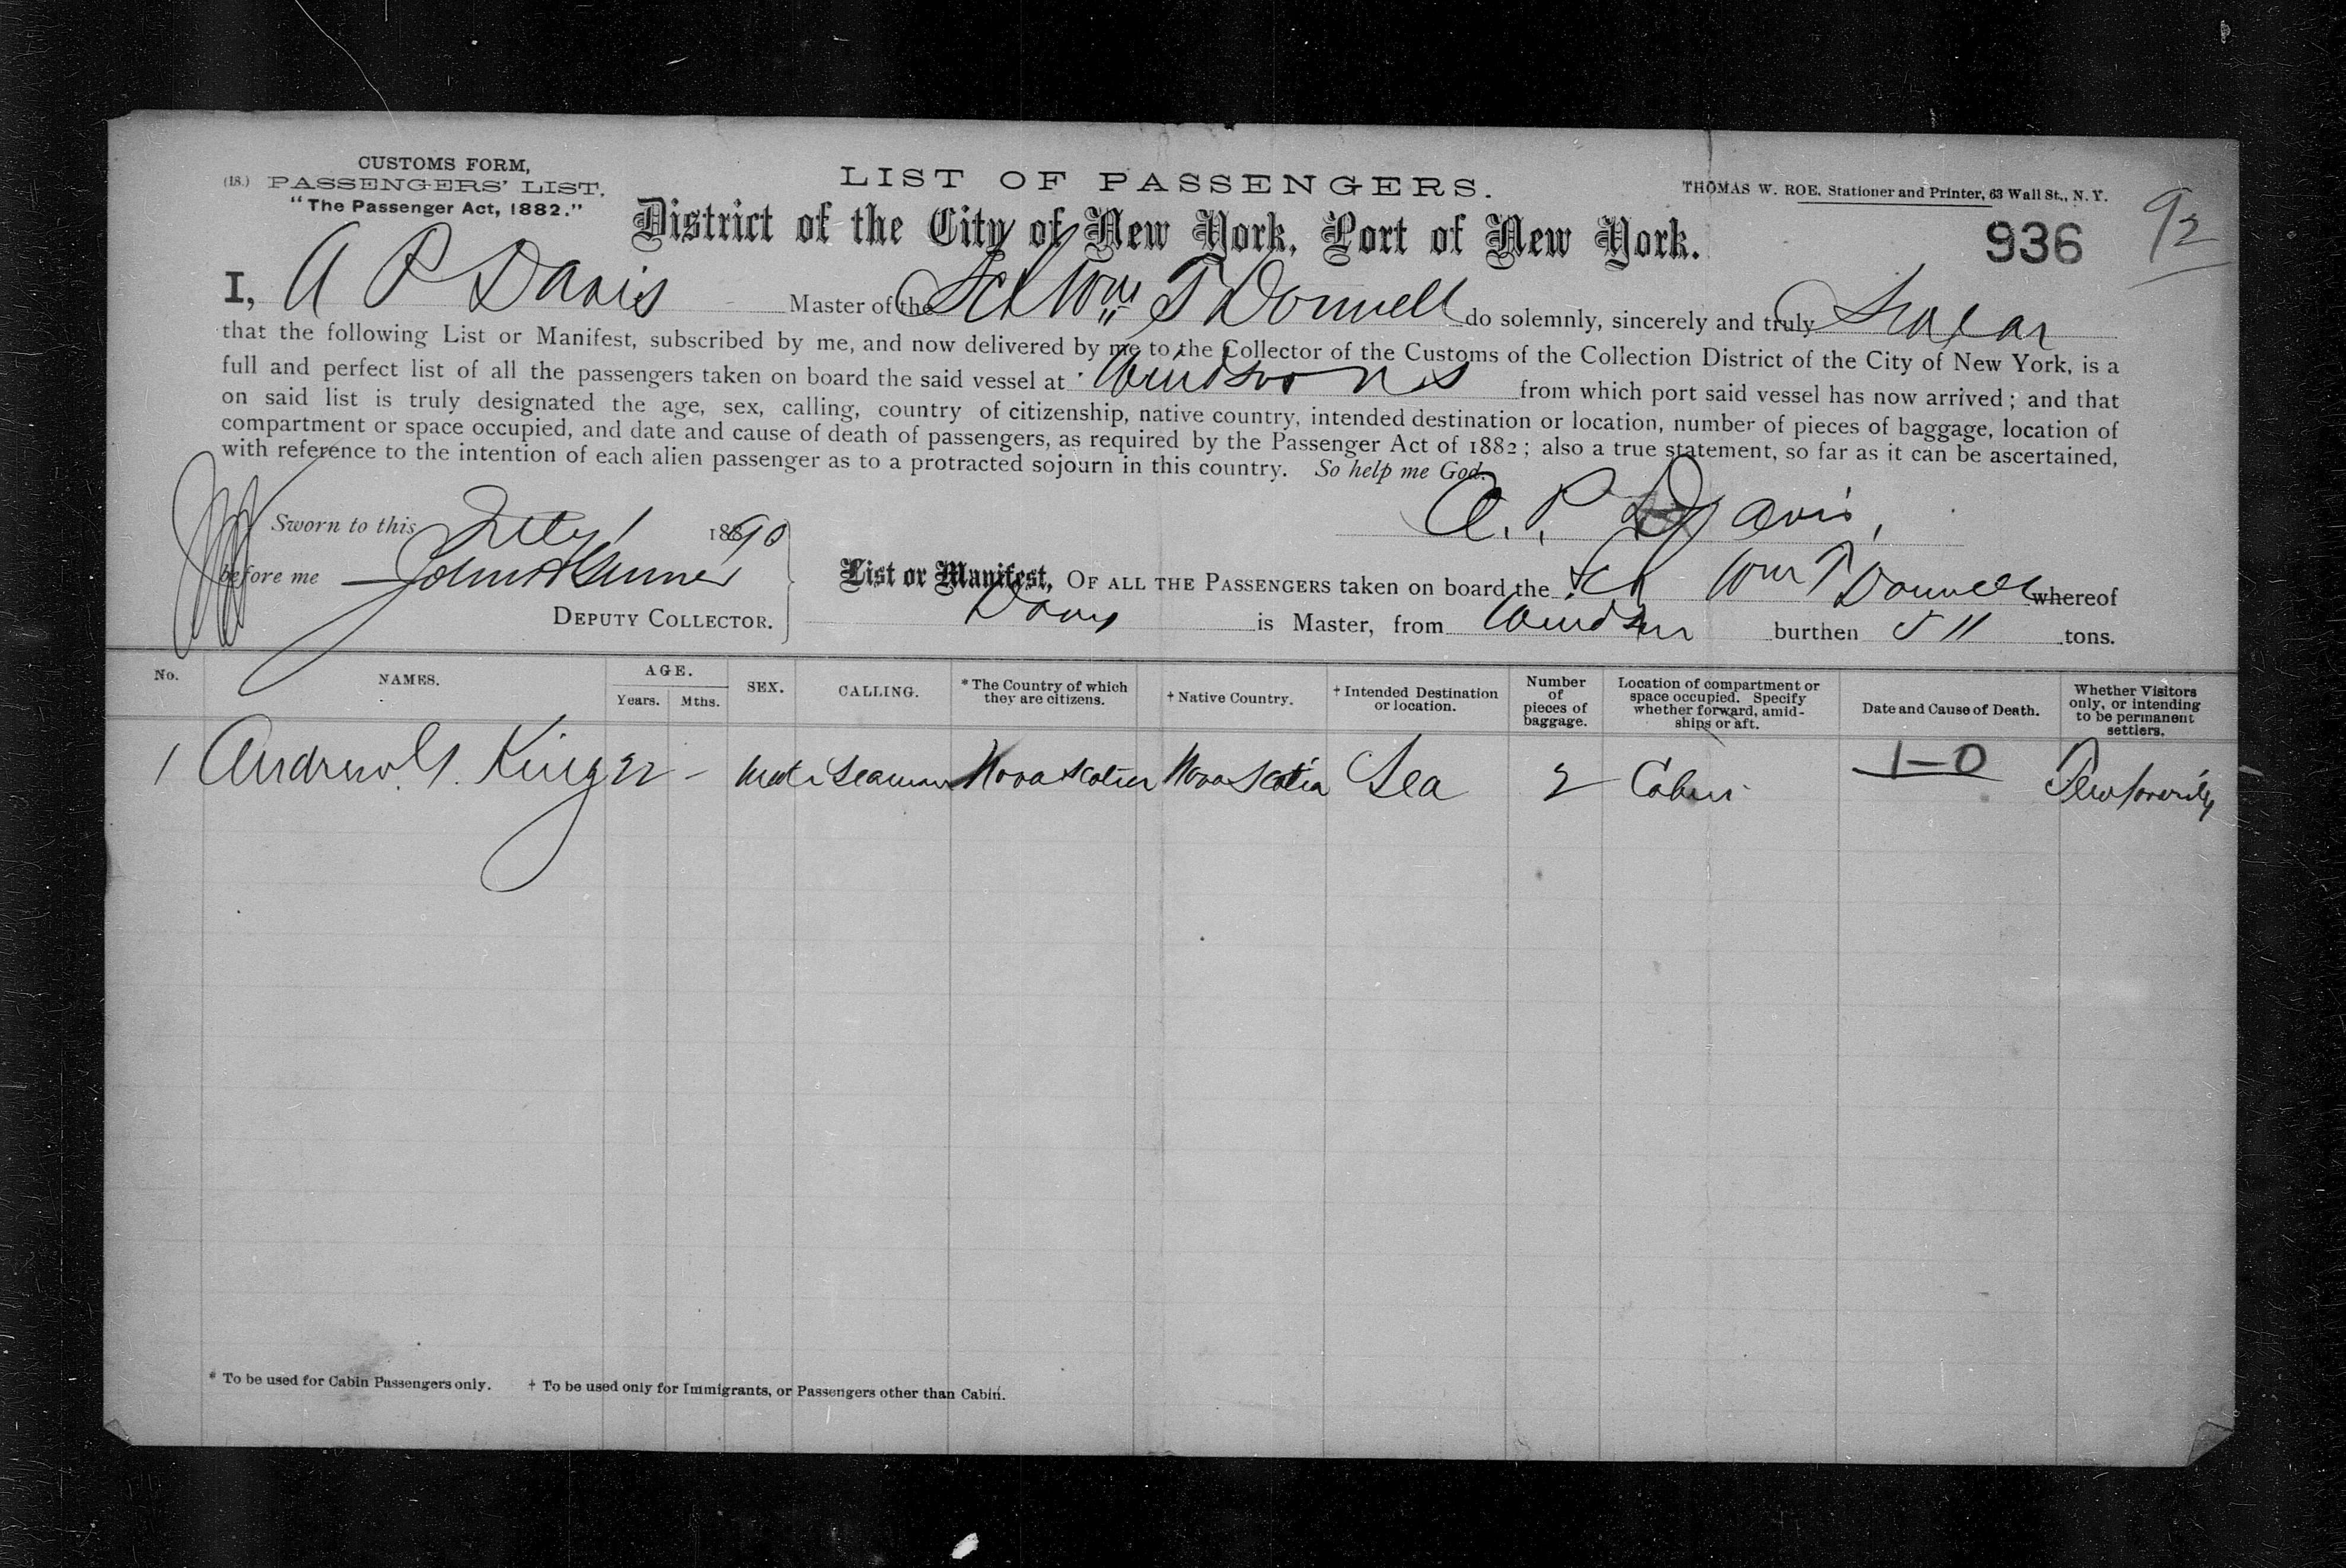 CUSTOMS FORM,
(18.) PASSENGERS' LIST.
"The Passenger Act, 1882."
LIST OF PASSENGERS.
THOMAS W. ROE, Stationer and Printer, 63 Wall St., N. Y.
92
District of the City of New York, Port of New York.
936
I, A P Davis Master of the Sch Wm T Donnell do solemnly, sincerely and truly Swear
that the following List or Manifest, subscribed by me, and now delivered by me to the Collector of the Customs of the Collection District of the City of New York, is a
full and perfect list of all the passengers taken on board the said vessel at Windsor N S from which port said vessel has now arrived; and that
on said list is truly designated the age, sex, calling, country of citizenship, native country, intended destination or location, number of pieces of baggage, location of
compartment or space occupied, and date and cause of death of passengers, as required by the Passenger Act of 1882; also a true statement, so far as it can be ascertained,
with reference to the intention of each alien passenger as to a protracted sojourn in this country. So help me God.
A. P. Davis,
Sworn to this July 1 1890
before me John
DEPUTY COLLECTOR.
List or Manifest, OF ALL THE PASSENGERS taken on board the Sch Wm T Donnell whereof
Davis is Master, from Windsor burthen 511 tons.
No. NAMES. AGE. Years. Mths. SEX. CALLING. * The Country of which they are citizens. † Native Country. † Intended Destination or location. Number of pieces of baggage. Location of compartment or space occupied. Specify whether forward, amidships or aft. Date and Cause of Death. Whether Visitors only, or intending to be permanent settlers.
1 Andrew G. King 22 - Male Seaman Nova Scotia Nova Scotia Sea 2 Cabin 1-0
* To be used for Cabin Passengers only. † To be used only for Immigrants, or Passengers other than Cabin.